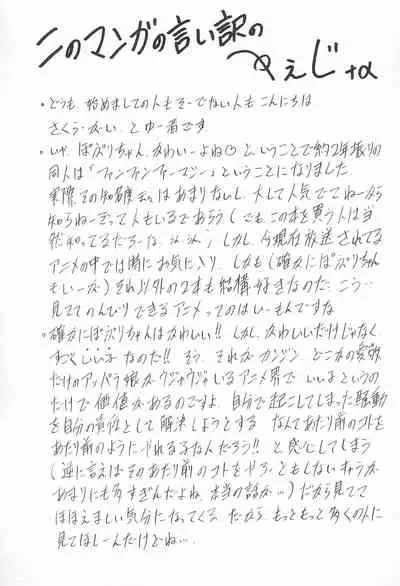 このマンガの言い訳の
ぺえじ+α
・どうも、始めましての人もそーでない人もこんにちは
さくら・かい とゆー者です
・いや、ぽぷりちゃん、かわいーよね♡ というこことで約2年振りの
同人は「ファンファンファーマシー」ということになりました
実際その知名度 はあまりないし、大して人気でてねーから
知らねーぞって人もいるであろう(でも、この本を買う人は当
然知ってるだろーな) しかし、今現在放送されてる
アニメの中では特にお気に入り、しかも(確かにぽぷりちゃん
もいーが)それ以外の2本も結構好きなのだ、こう…
見ててのんびりできるアニメってのはいーもんですな
・確かにぽぷりちゃんはかわいい!! しかし、かわいいだけじゃなく
すごくいい子なのだ!! そう、それがカンジン どこかの
だけのアッパラ娘がウジャウジャいるアニメ界で いい子というの
だけで価値があるのですよ、自分で起こしてしまった騒動
を自分の責任として解決しようとする なんてあたり前のコトを
あたり前のようにやれる子なんだろう!! と感心してしまう
(逆に言えばそのあたり前のコトをやろーともしないキャラが
あまりにも多すぎんだよね、本当の話が…)だから見てて
ほほえましい気分になってくる だから、もっともっと多くの人に
見てほしーんだけどね…